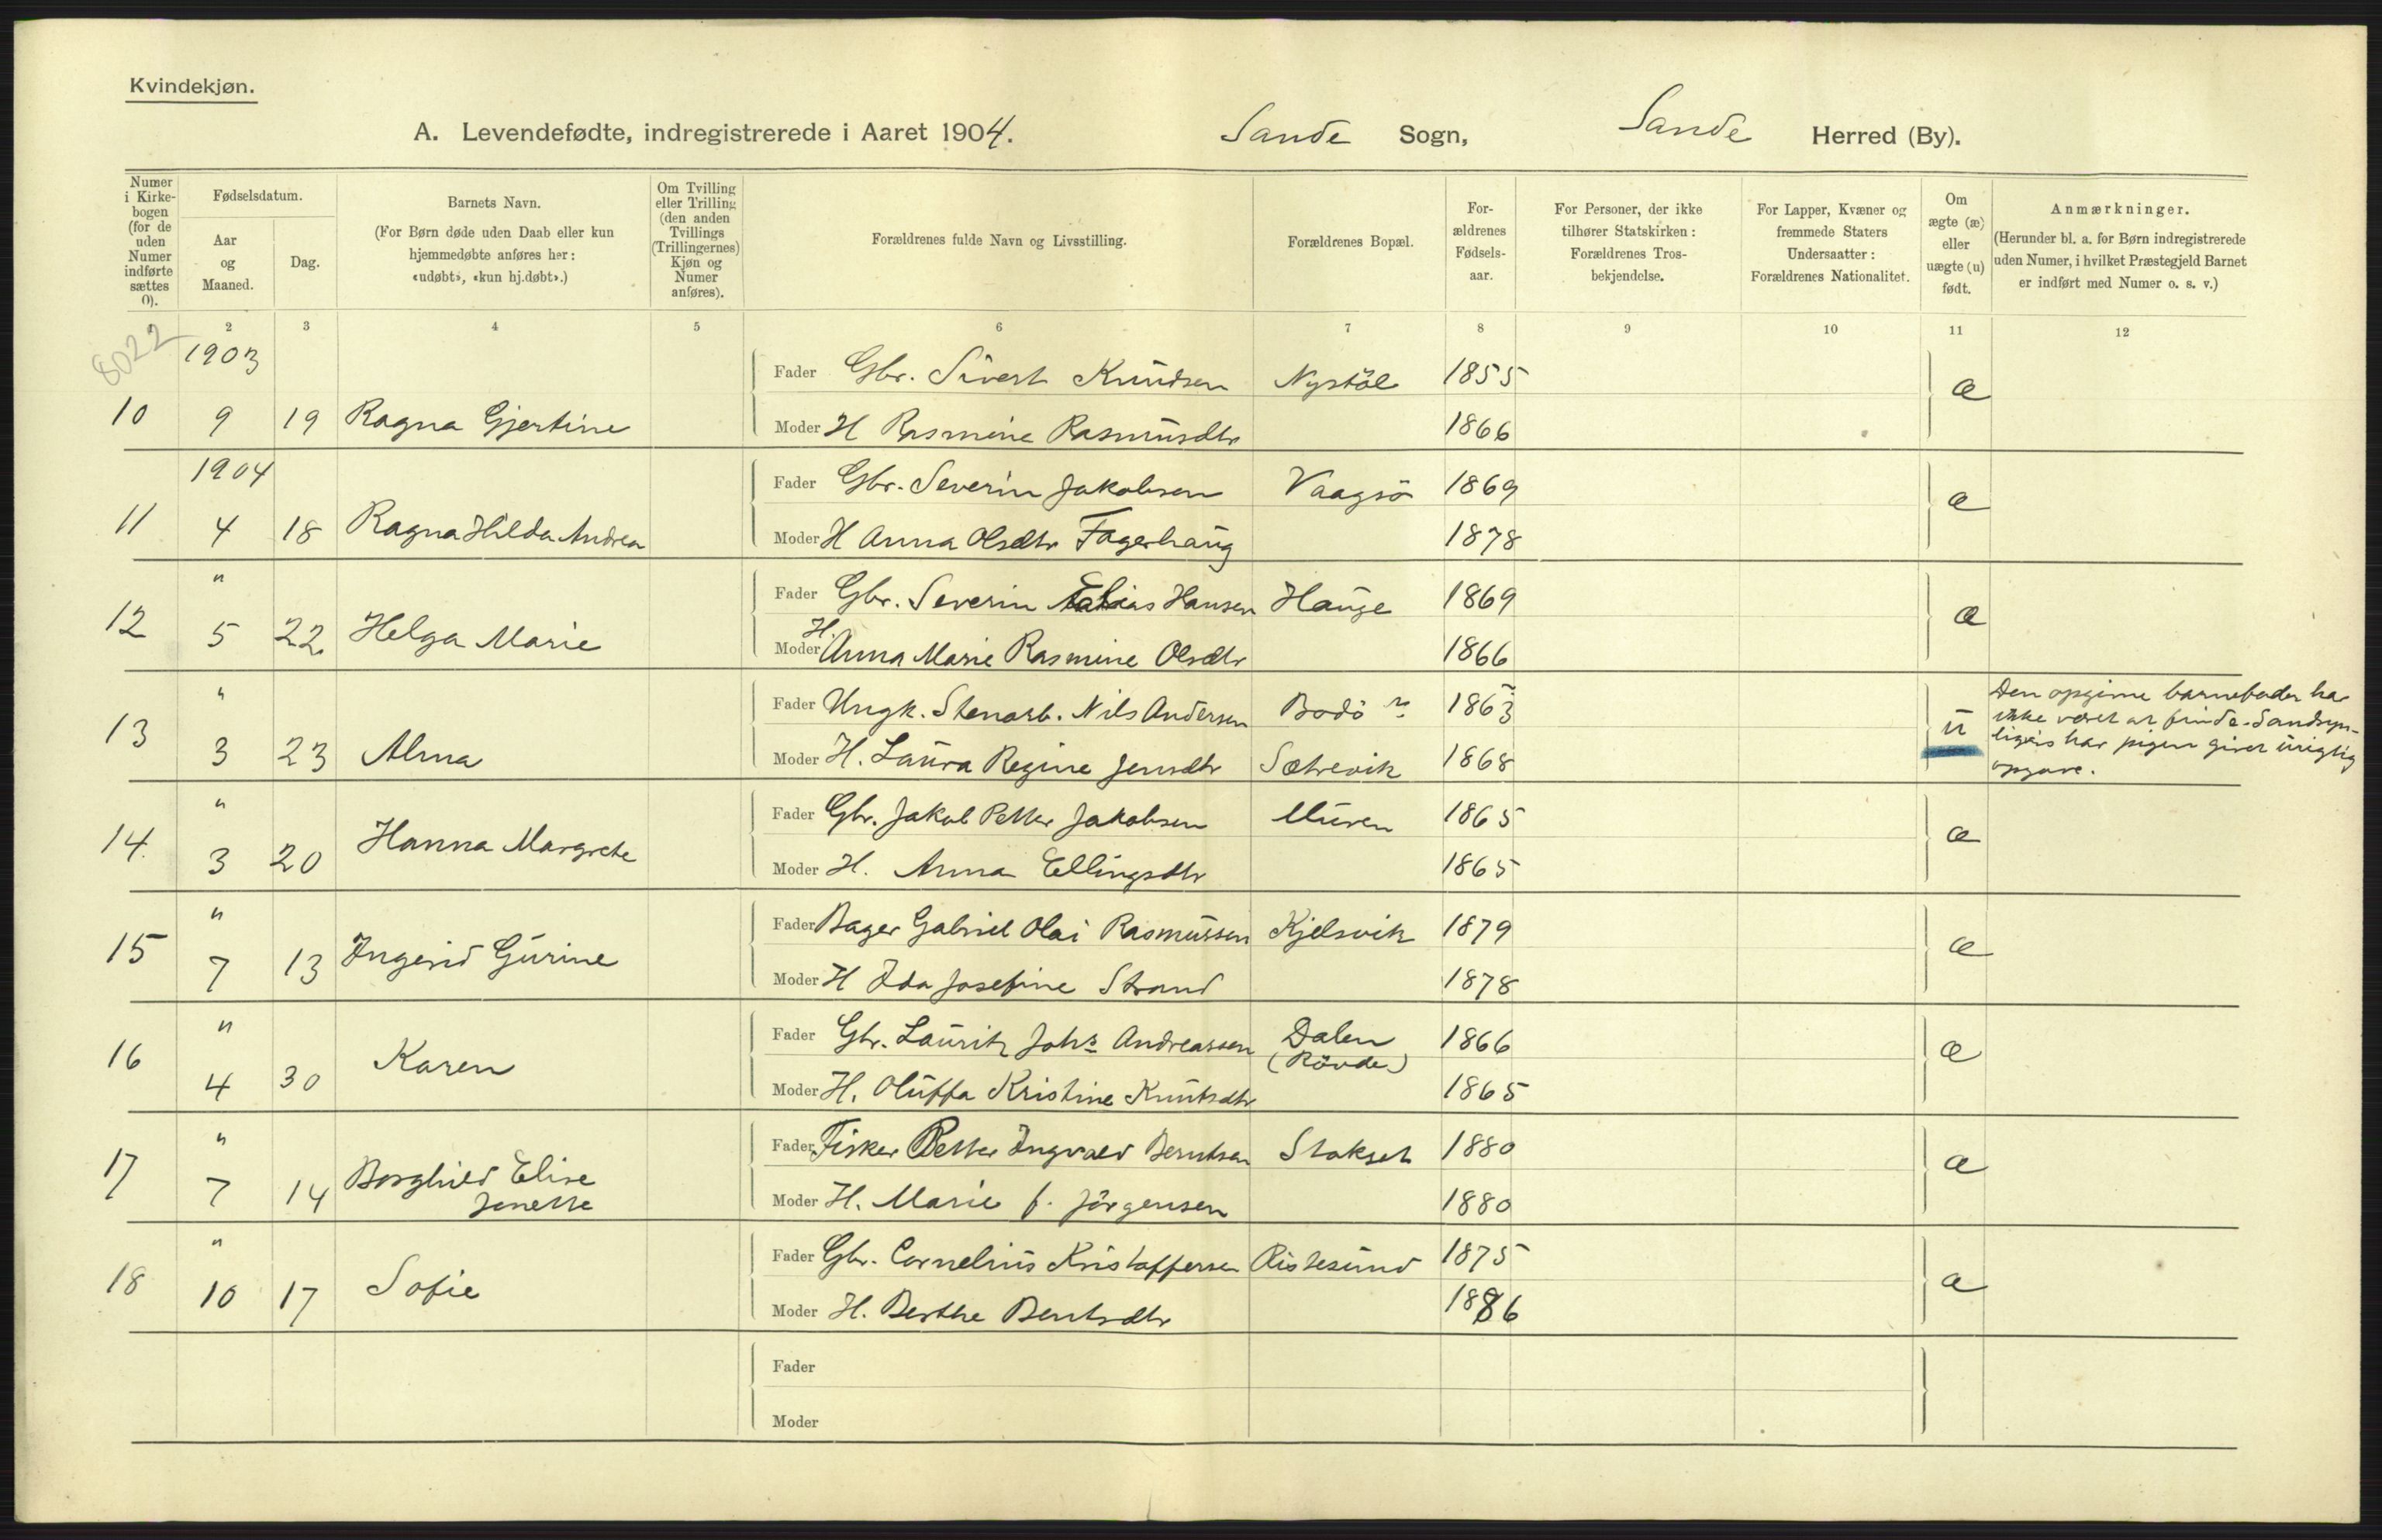 Kvindekjøn.
A. Levendefødte, indregistrerede i Aaret 1904. Sande Sogn, Sande Herred (By).
Numer i Kirke-bogen (for de uden Numer indførte sættes 0).
Fødselsdatum.
Aar og Maaned.
Dag.
Barnets Navn.
(For Børn døde uden Daab eller kun
hjemmedøbte anføres her:
«udøbt», «kun hj.døbt».)
Om Tvilling
eller Trilling
(den anden
Tvillings
(Trillingernes)
Kjøn og
Numer
anføres).
Forældrenes fulde Navn og Livsstilling.
Forældrenes Bopæl.
For-
ældrenes
Fødsels-
aar.
For Personer, der ikke
tilhører Statskirken:
Forældrenes Tros-
bekjendelse.
For Lapper, Kvæner og
fremmede Staters
Undersaatter:
Forældrenes Nationalitet.
Om
ægte (æ)
eller
uægte (u)
født.
Anmærkninger.
(Herunder bl. a. for Børn indregistrerede
uden Numer, i hvilket Præstegjeld Barnet
er indført med Numer o. s. v.)
2 3 4 5 6 7 8 9 10 11 12
8022
1903 Fader Gbr. Sivert Knudsen Nystöl 1855 æ
10 9 19 Ragna Gjertine Moder H Rasmine Rasmusdtr 1866
1904 Fader Gbr. Severin Jakobsen Vaagsö 1869 æ
11 4 18 Ragna Hilda Andrea Moder H Anna Olsdtr Fagerhaug 1878
" Fader Gbr. Severin Tobias Hansen Hauge 1869 æ
12 5 22. Helga Marie Moder H. Anna Marie Rasmine Olsdtr 1866
" Fader Ungk. Stenarb. Nils Andersen Bodö 1863 u
13 3 23 Alma Moder H. Laura Regine Jensdtr Sætrevik 1868
Den opgivne barnefader har
ikke været at finde. Sandsyn-
ligvis har pigen givet urigtig
opgave.
" Fader Gbr. Jakob Petter Jakobsen Muren 1865 æ
14. 3 20 Hanna Margrete Moder H. Anna Ellingsdtr 1865
" Fader Bager Gabriel Olai Rasmussen Kjelsvik 1879 æ
15 7 13 Ingerid Gurine Moder H Ida Josefine Strand 1878
" Fader Gbr. Lauritz Johs Andreassen Dalen (Rövde) 1866 æ
16 4 30 Karen Moder H. Oluffa Kristine Knutsdtr 1865
" Fader Fisker Petter Ingvald Berntsen Stokset 1880 æ
17 7 14 Borghild Elise Jenette Moder H. Marie f. Jörgensen 1880
" Fader Gbr. Cornelius Kristoffersen Ristesund 1875 æ
18 10 17 Sofie Moder H. Berthe Bentsdtr 1886
Fader
Moder